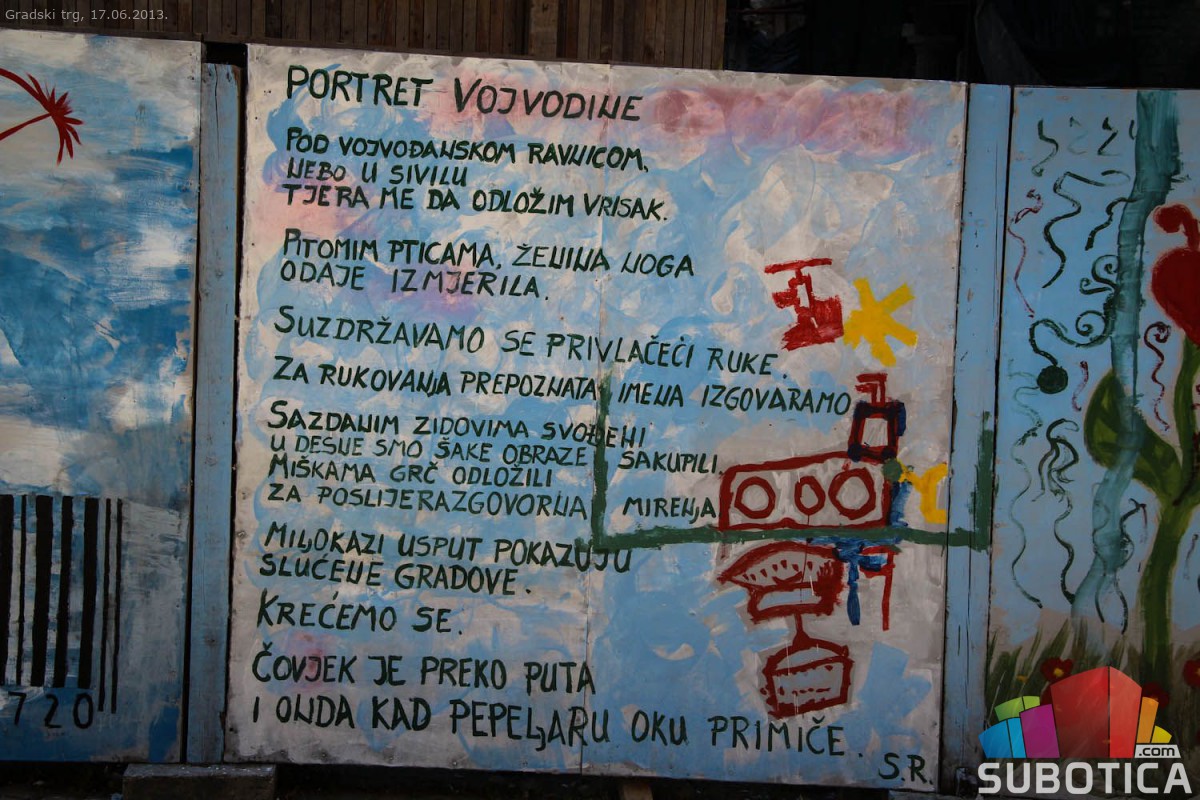 Gradski trg, 17.06.2013.
PORTRET VOJVODINE
POD VOJVOĐANSKOM RAVNICOM,
NEBO U SIVILU
TJERA ME DA ODLOŽIM VRISAK.
PITOMIM PTICAMA, ŽENINA NOGA
ODAJE IZMJERILA.
SUZDRŽAVAMO SE PRIVLAČEĆI RUKE.
ZA RUKOVANJA PREPOZNATA IMENA IZGOVARAMO
SAZDANIM ZIDOVIMA SVOĐENI
U DESNE SMO ŠAKE OBRAZE SAKUPILI.
MIŠKAMA GRČ ODLOŽILI
ZA POSLIJERAZGOVORNA MIRENJA
MILJOKAZI USPUT POKAZUJU
SLUĆENE GRADOVE.
KREĆEMO SE.
ČOVJEK JE PREKO PUTA
I ONDA KAD PEPELJARU OKU PRIMIČE.
S.R.
720
.com
SUBOTICA